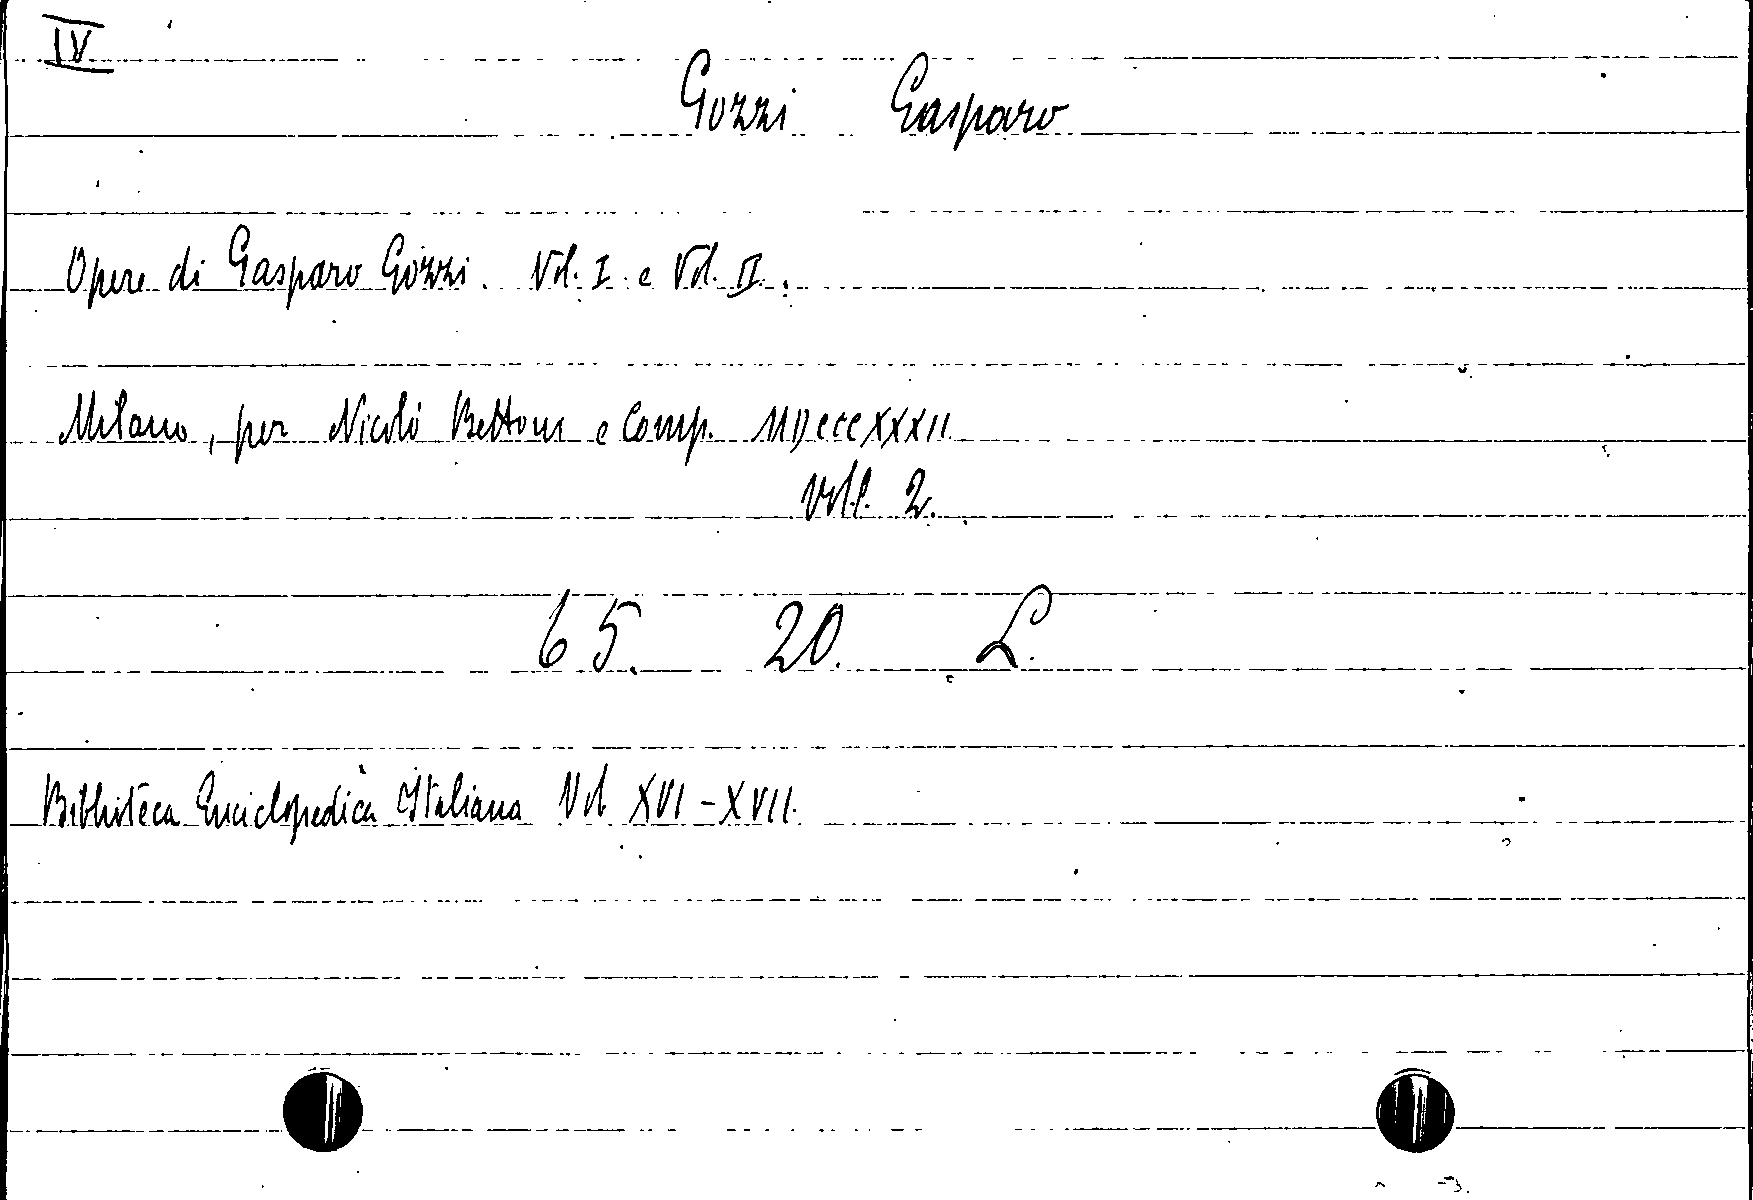 IV
Gozzi Gasparo
Opere di Gasparo Gozzi. Vol. I e Vol. II.
Milano, per Nicolò Bettoni e Comp. MDCCCXXXII
Voll. 2.
65. 20. L.
Biblioteca Enciclopedica Italiana Vol XVI-XVII.